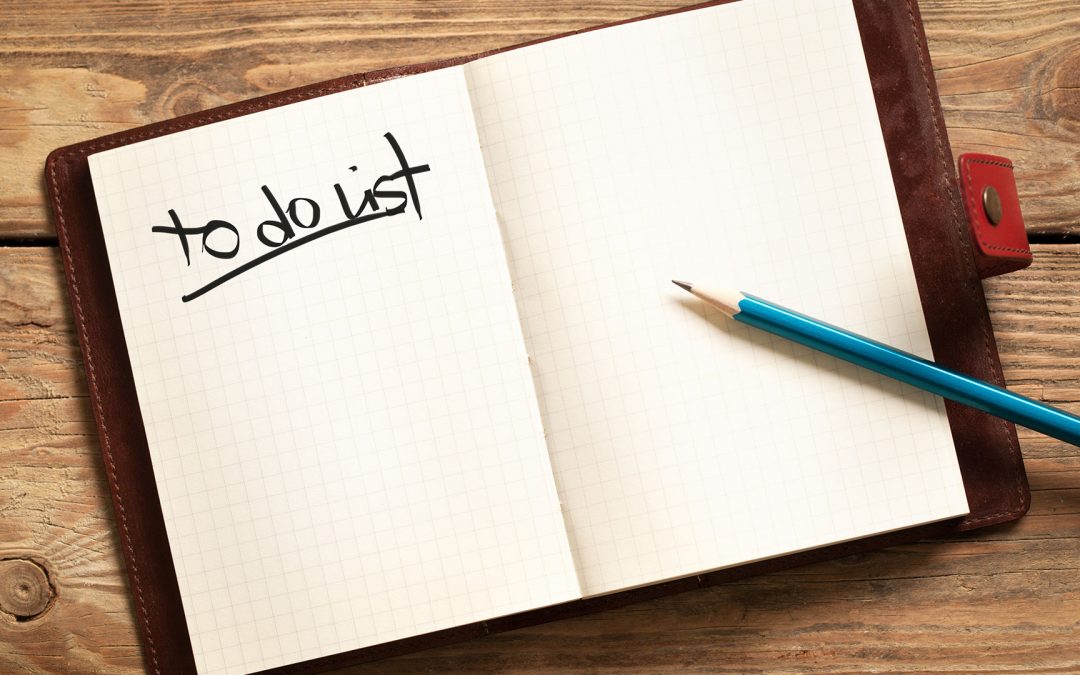 to do list